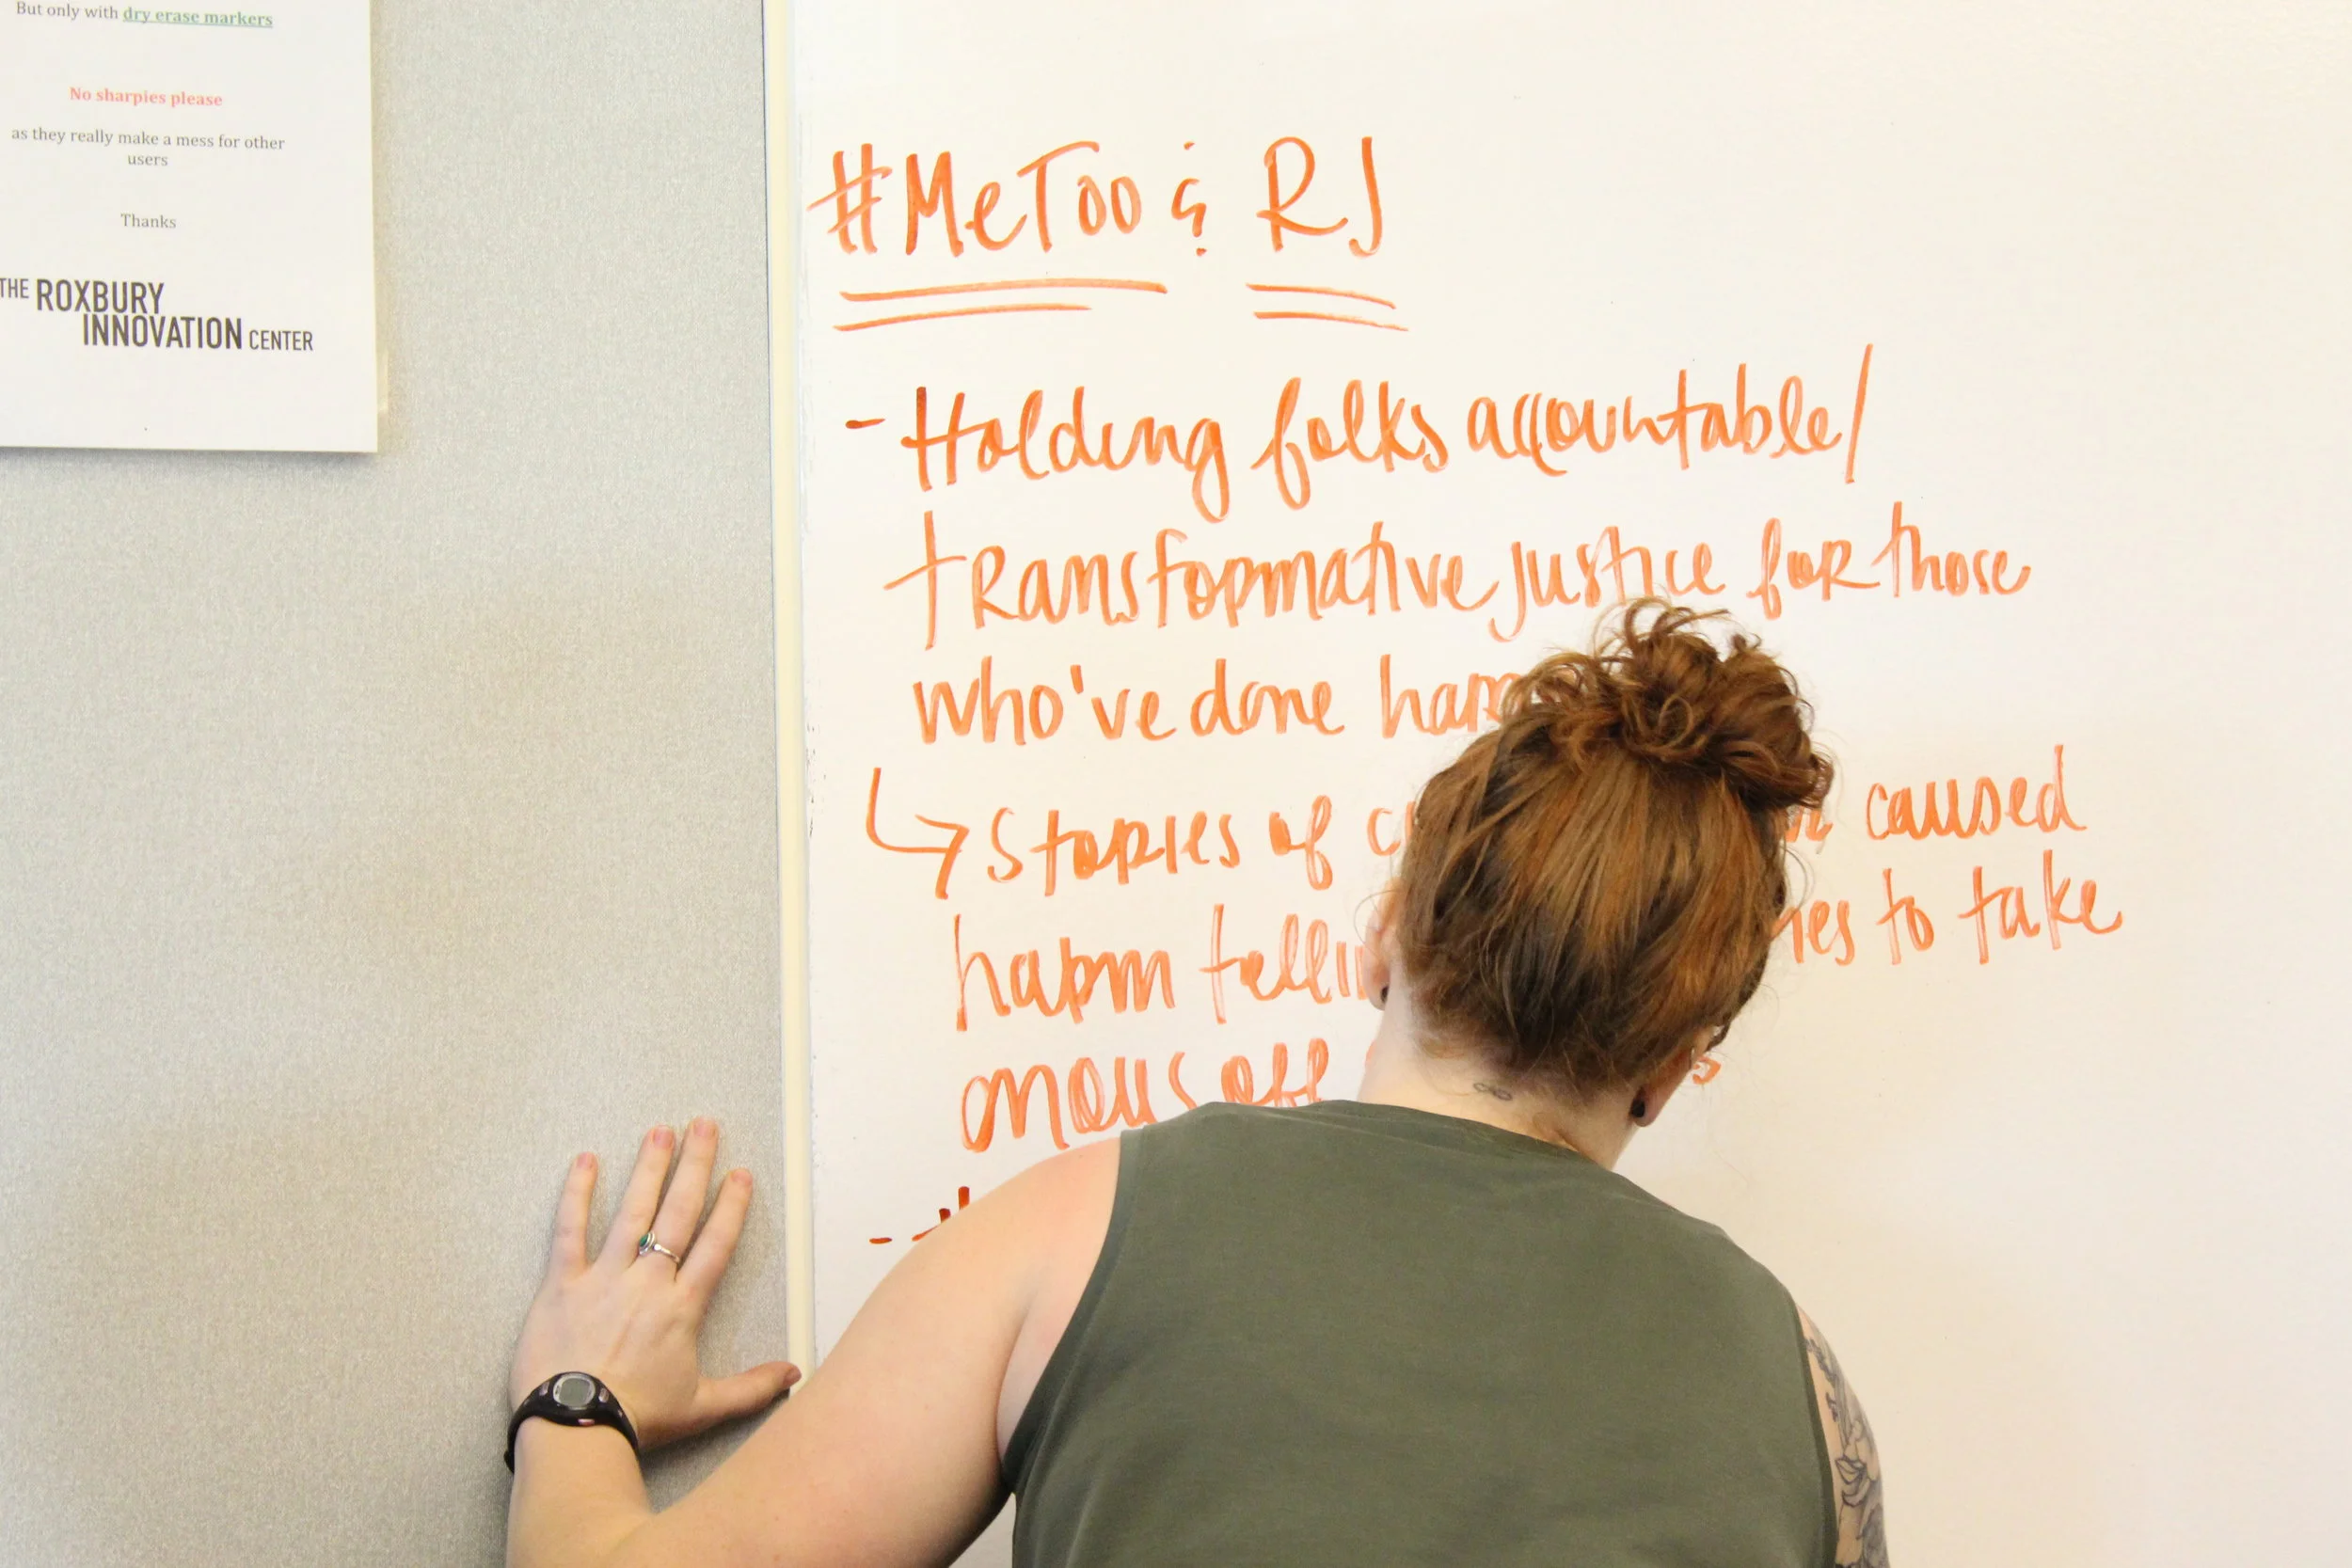 But only with dry erase markers
No sharpies please
as they really make a mess for other
users
Thanks
THE ROXBURY
INNOVATION CENTER
#MeToo & RJ
- Holding folks accountable/
transformative justice for those
who've done
↳ Stories of caused
harm to take
off